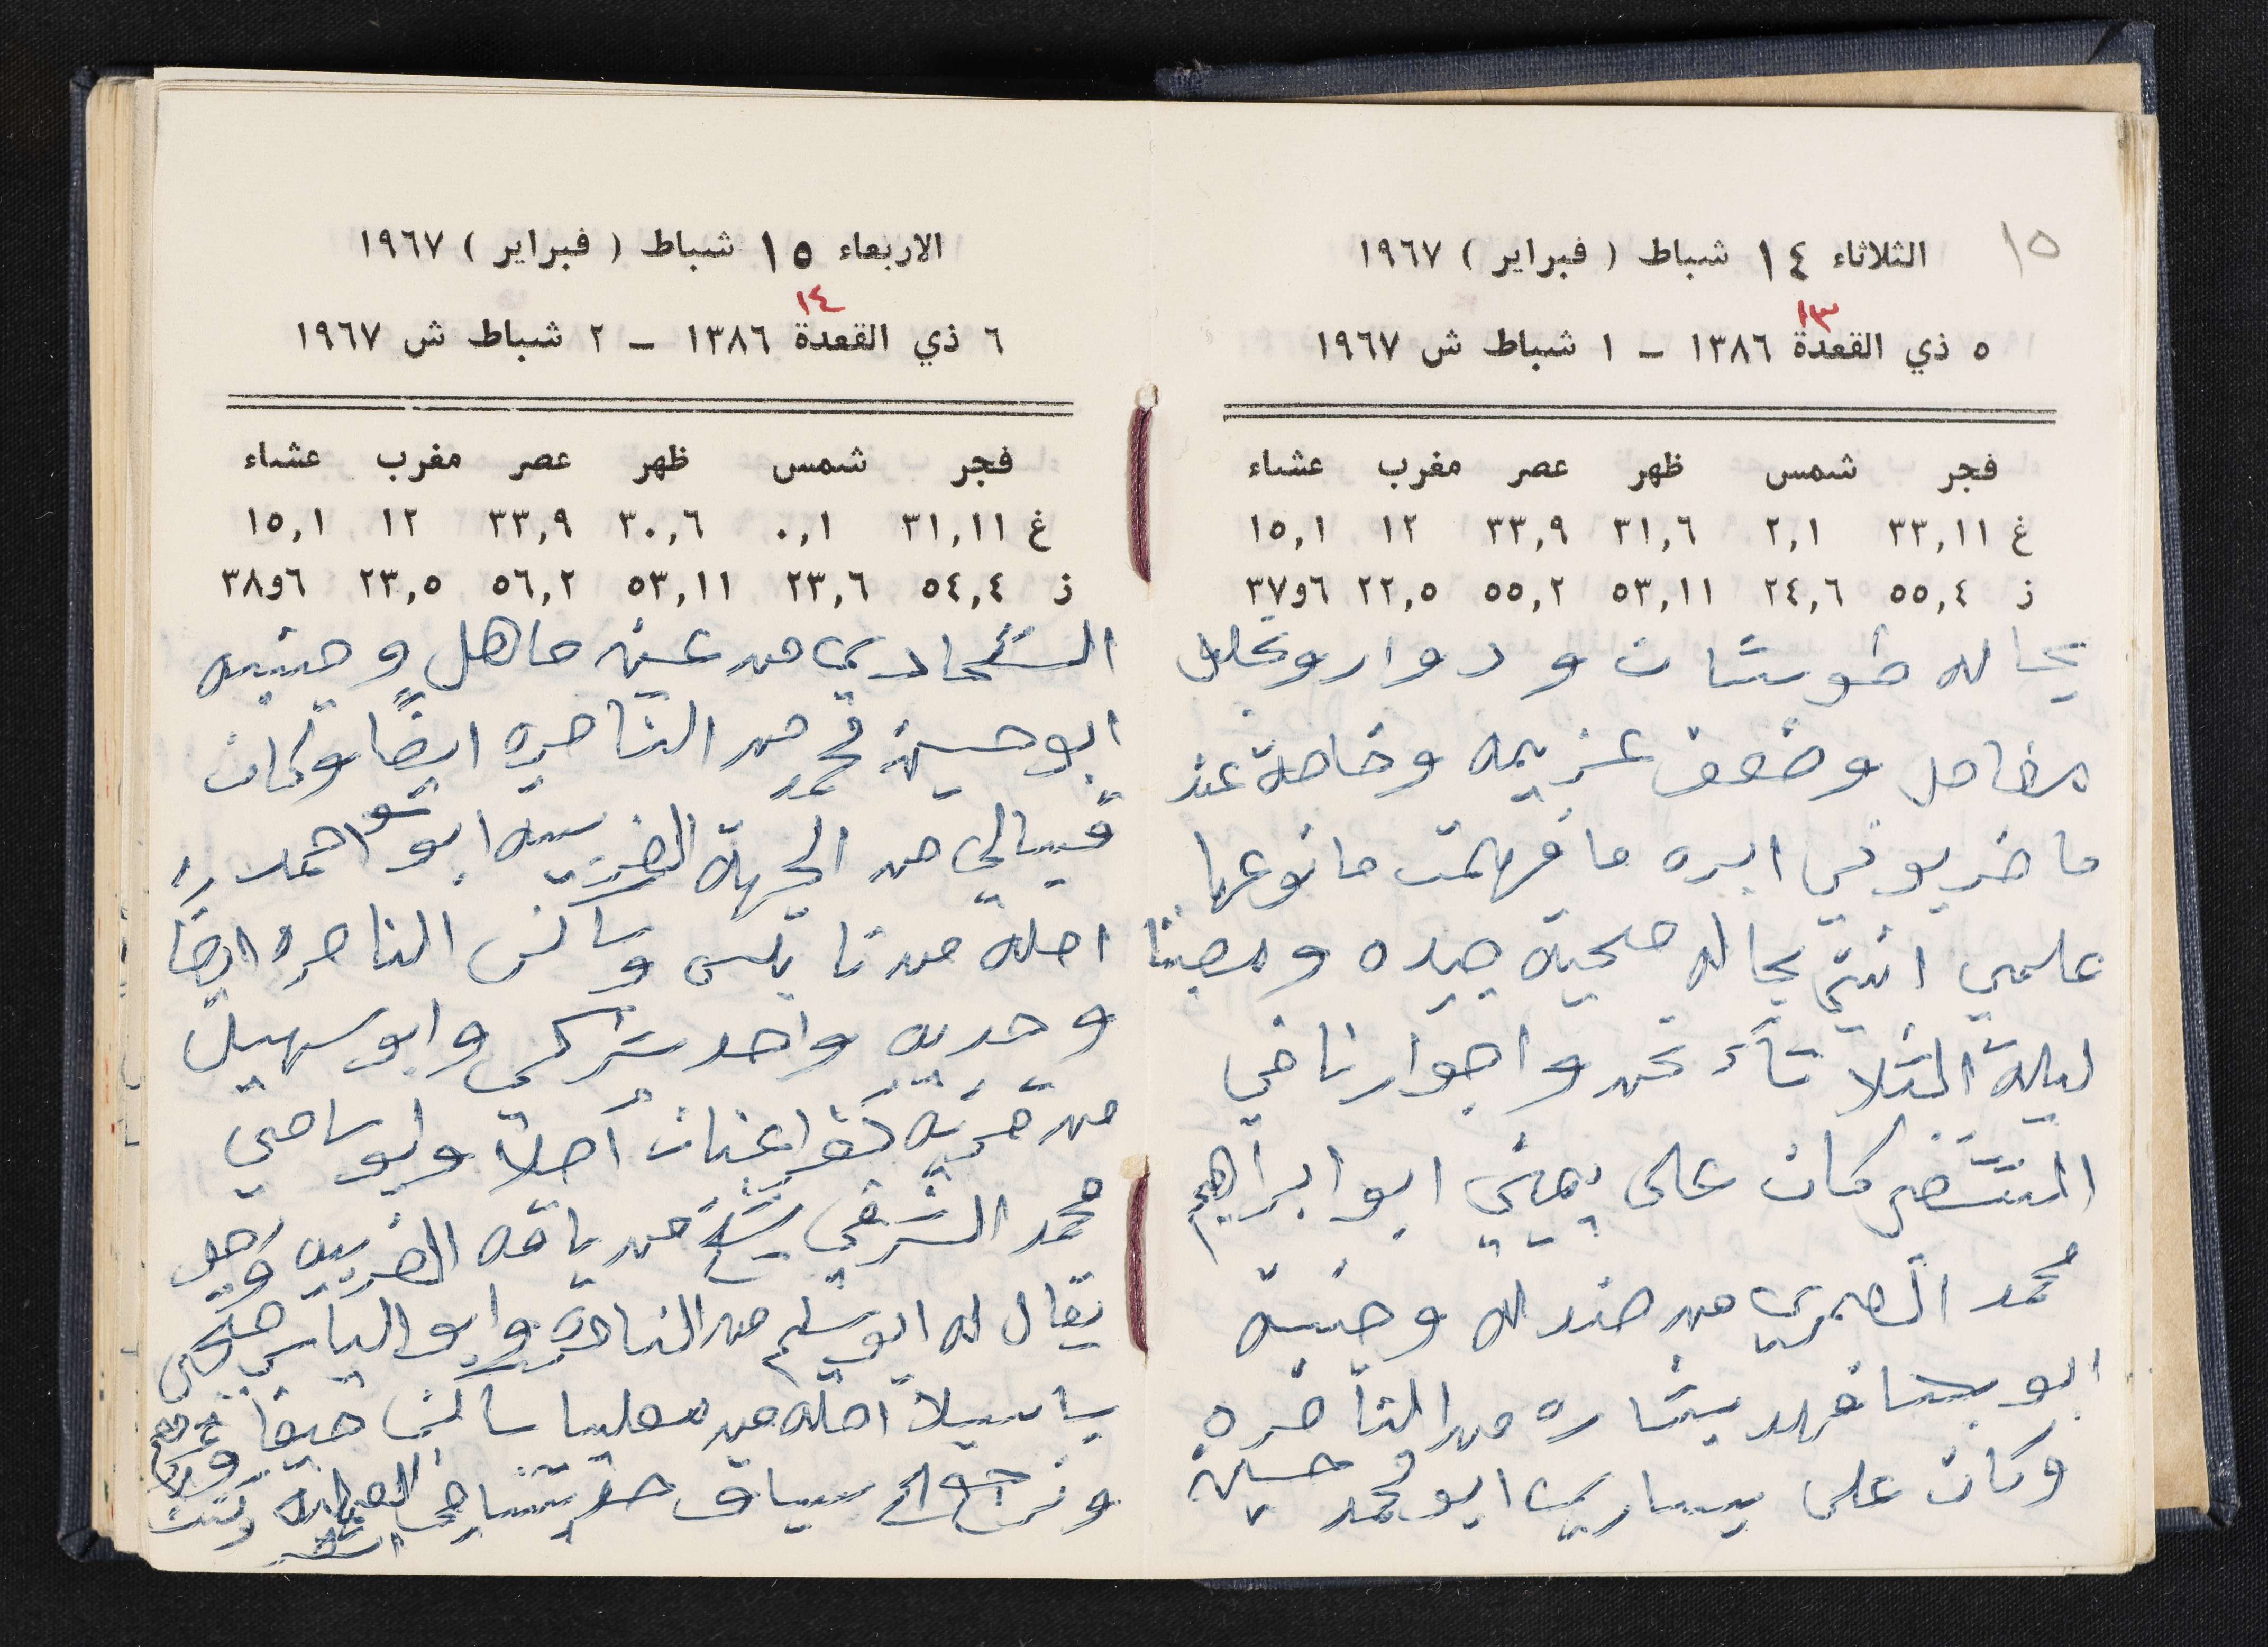 ١٥
الثلاثاء ١٤ شباط ( فبراير ) ١٩٦٧
١٣
٥ ذي القعدة ١٣٨٦ – ١ شباط ش ١٩٦٧
فجر شمس ظهر عصر مغرب عشاء
غ ٣٣,١١ ٢,١ ٣١,٦ ٣٣,٩ ١٢ ١٥,١
ز ٥٥,٤ ٢٤,٦ ٥٣,١١ ٥٥,٢ ٢٢,٥ ٦و٣٧
بحاله طوشان ودوار وبحلل
مفاصل وضعف عزيمه وخاصة عند
ما ضربوني ابره ما فهمت ما نوعها
علمي انني بحاله صحية جيده
ليلة الثلاثاء نحن واجوارنا في
كان على يميني ابو ابراهيم
محمد العمري من صندله وجنبه
ابو فهد بشاره من الناصره
وكان على يساري ابو محمد حسين
الاربعاء ١٥ شباط ( فبراير ) ١٩٦٧
١٤
٦ ذي القعدة ١٣٨٦ – ٢ شباط ش ١٩٦٧
فجر شمس ظهر عصر مغرب عشاء
غ ٣١,١١ ٠,١ ٣٠,٦ ٣٣,٩ ١٢ ١٥,١
ز ٥٤,٤ ٢٣,٦ ٥٣,١١ ٥٦,٢ ٢٣,٥ ٦و٣٨
الشحادي من عين ماهل وجنبه
ابو حسين محمد من الناصره ايضًا وكان
قبالي من الجهة الغربيه ابو احمد
اصله من نابلس وساكن الناصره ايضًا
وحديه واحد شركسي وابو سهيل
من قرية اصلًا وابو سامي
محمد الشرقي من باقه الغربيه
يقال له ابو سليم من الناصره وابو الياس
باسيلا اصله من معليا ساكن حيفا
سياف